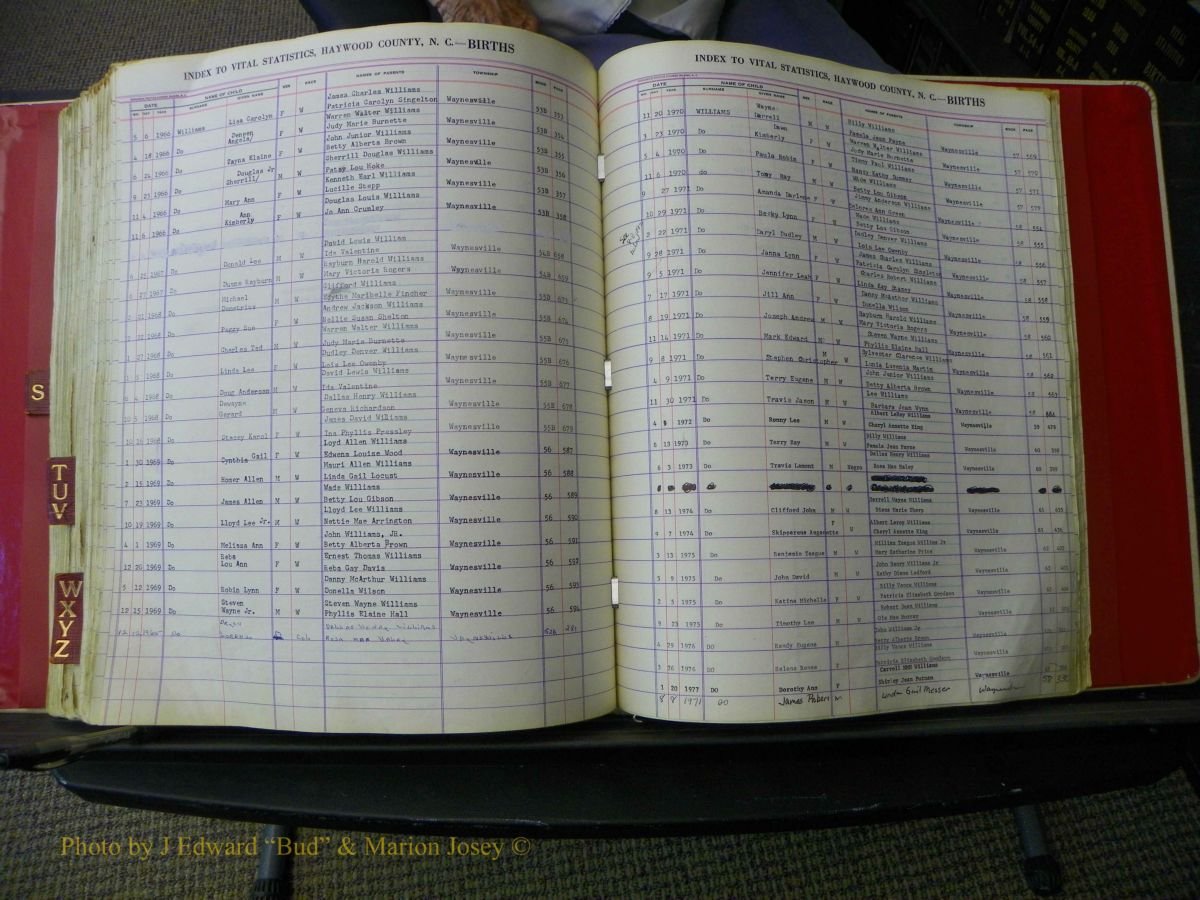 INDEX TO VITAL STATISTICS, HAYWOOD COUNTY, N. C.—BIRTHS
DATE NAME OF CHILD SEX RACE NAMES OF PARENTS TOWNSHIP BOOK PAGE
MO. DAY YEAR SURNAME GIVEN NAME
James Charles Williams
5 6 1966 Williams Lisa Carolyn F W Patricia Carolyn Singelton Waynesville 53B 353
Warren Walter Williams
4 18 1966 Do Angela/ F W Judy Marie Burnette Waynesville 53B 354
John Junior Williams
6 24 1966 Do Tayna Elaine F W Betty Alberta Brown Waynesville 53B 355
Sherrill Douglas Williams
9 21 1966 Do Sherrill/ Douglas Jr M W Patsy Lou Hoke Waynesville 53B 356
Kenneth Earl Williams
11 4 1966 Do Mary Ann F W Lucille Stepp Waynesville 53B 357
Douglas Louis Williams
11 6 1966 Do Kimberly Ann F W Jo Ann Crumley Waynesville 53B 358
David Lewis William
1967 Do Donald Lee M W Ida Valentine Waynesville 54B 658
Rayburn Harold Williams
1967 Do Duane Rayburn M W Mary Victoria Rogers Waynesville 54B 659
Clifford Williams
1968 Do Michael Demetrius M Edythe Maribelle Fincher Waynesville 55B 673
Andrew Jackson Williams
1968 Do Peggy Sue F W Nellie Susan Shelton Waynesville 55B 674
Warren Walter Williams
1 27 1968 Do Charles Ted M W Judy Marie Burnette Waynesville 55B 675
Dudley Denver Williams
1 5 1968 Do Linda Lee F W Lois Lee Owenby Waynesville 55B 676
David Lewis Williams
6 4 1968 Do Doug Anderson M W Ida Valentine Waynesville 55B 677
Dallas Henry Williams
10 5 1968 Do Dewayne Gerard M Geneva Richardson Waynesville 55B 678
James David Wiliams
1968 Do Stacey Karol F W Ina Phyllis Pressley Waynesville 55B 679
Loyd Allen Williams
1 30 1969 Do Cynthia Gail F W Edwena Louise Wood Waynesville 56 587
Mauri Allen Williams
2 15 1969 Do Homer Allen M W Linda Gail Locust Waynesville 56 588
Wade Williams
7 23 1969 Do James Allen M W Betty Lou Gibson Waynesville 56 589
Lloyd Lee Williams
10 19 1969 Do Lloyd Lee Jr. M W Nettie Mae Arrington Waynesville 56 590
John Williams, JR.
4 1 1969 Do Melissa Ann F W Betty Alberta Brown Waynesville 56 591
Reba Ernest Thomas Williams
12 20 1969 Do Lou Ann F W Reba Gay Davis Waynesville 56 592
Danny McArthur Williams
5 12 1969 Do Robin Lynn F W Donella Wilson Waynesville 56 593
Steven Steven Wayne Williams
12 15 1969 Do Wayne Jr. M W Phyllis Elaine Hall Waynesville 56 594
Dallas Henry Williams
Do Col Rosa Mae Waynesville 52A 281
S
TUV
WXYZ
INDEX TO VITAL STATISTICS, HAYWOOD COUNTY, N. C.—BIRTHS
DATE NAME OF CHILD SEX RACE NAMES OF PARENTS TOWNSHIP BOOK PAGE
MO. DAY YEAR SURNAME GIVEN NAME
Wayne Billy Williams
11 20 1970 WILLIAMS Darrell M W Pamela Jean Payne Waynesville 57 569
Dawn Warren Walter Williams
3 23 1970 Do Kimberly F W Judy Marie Burnette Waynesville 57 570
Timmy Paul Williams
5 4 1970 Do Paula Robin F W Nancy Kathy Summey Waynesville 57 571
Wade Williams
11 6 1970 do Tony Ray M W Betty Lou Gibson Waynesville 57
Jimmy Anderson Williams
27 1971 Do Amanda Darlene F W Delores Ann Green Waynesville 58 554
Wade Williams
10 29 1971 Do Becky Lynn F W Betty Lou Gibson Waynesville 58 555
Dudley Denver Williams
2 22 1971 Do Daryl Dudley M W Lois Lee Owenby Waynesville 58 556
James Charles Williams
9 28 1971 Do Janna Lynn F W Patricia Carolyn Singleton Waynesville 58 557
Charles Robert Williams
9 5 1971 Do Jennifer Leah F W Linda Kay Stamey Waynesville 58 558
Danny McArthur Williams
7 17 1971 Do Jill Ann F W Donella Wilson Waynesville 58 559
Rayburn Harold Williams
8 19 1971 Do Joseph Andrew M W Mary Victoria Rogers Waynesville 58 560
Steven Wayne Williams
11 14 1971 Do Mark Edward M W Phyllis Elaine Hall Waynesville 58 561
Sylvester Clarence Williams
9 8 1971 Do Stephen Christopher M W Lonia Luvenia Martin Waynesville 58 562
John Junior Williams
4 9 1971 Do Terry Eugene M W Betty Alberta Brown Waynesville 58 563
Lee Williams
11 30 1971 Do Travis Jason M W Barbara Jean Wynn Waynesville 58
Albert LeRoy Williams
4 1972 Do Ronny Lee M W Cheryl Annette King Waynesville 59 479
Billy Williams
6 13 1973 Do Terry Ray M W Pamela Jean Payne Waynesville 60 398
Dallas Henry Williams
6 3 1973 Do Travis Lamont M Negro Rosa Mae Haley Waynesville 60 399
Darrell Wayne Williams
8 13 1974 Do Clifford John M W Diane Marie Sharp Waynesville 61 435
Albert Leroy Williams
9 7 1974 Do F W Cheryl Annette King Waynesville 61 436
William Teague Williams Jr
3 13 1975 Do Benjamin Teague M W Mary Katherine Price Waynesville 62 402
John Henry Williams Jr
3 9 1975 Do John David M W Kathy Diane Ledford Waynesville 62 401
Billy Vance Williams
2 5 1975 Do Katina Michelle F W Patricia Elizabeth Goodson Waynesville 62
Robert Juan Williams
9 23 1975 Do Timothy Lee M W Ola Mae Hoover Waynesville
John Williams Jr
4 29 1976 DO Randy Eugene M Betty Alberta Brown
Billy Vance Williams
3 26 1976 DO Selena Renee F Patricia Elizabeth Goodson
Carroll NMN Williams
1 20 1977 DO Dorothy Ann F Shirley Jean Putnam Waynesville
8 8 1971 DO James Robert M Linda Gail Messer
Photo by J Edward “Bud” & Marion Josey ©